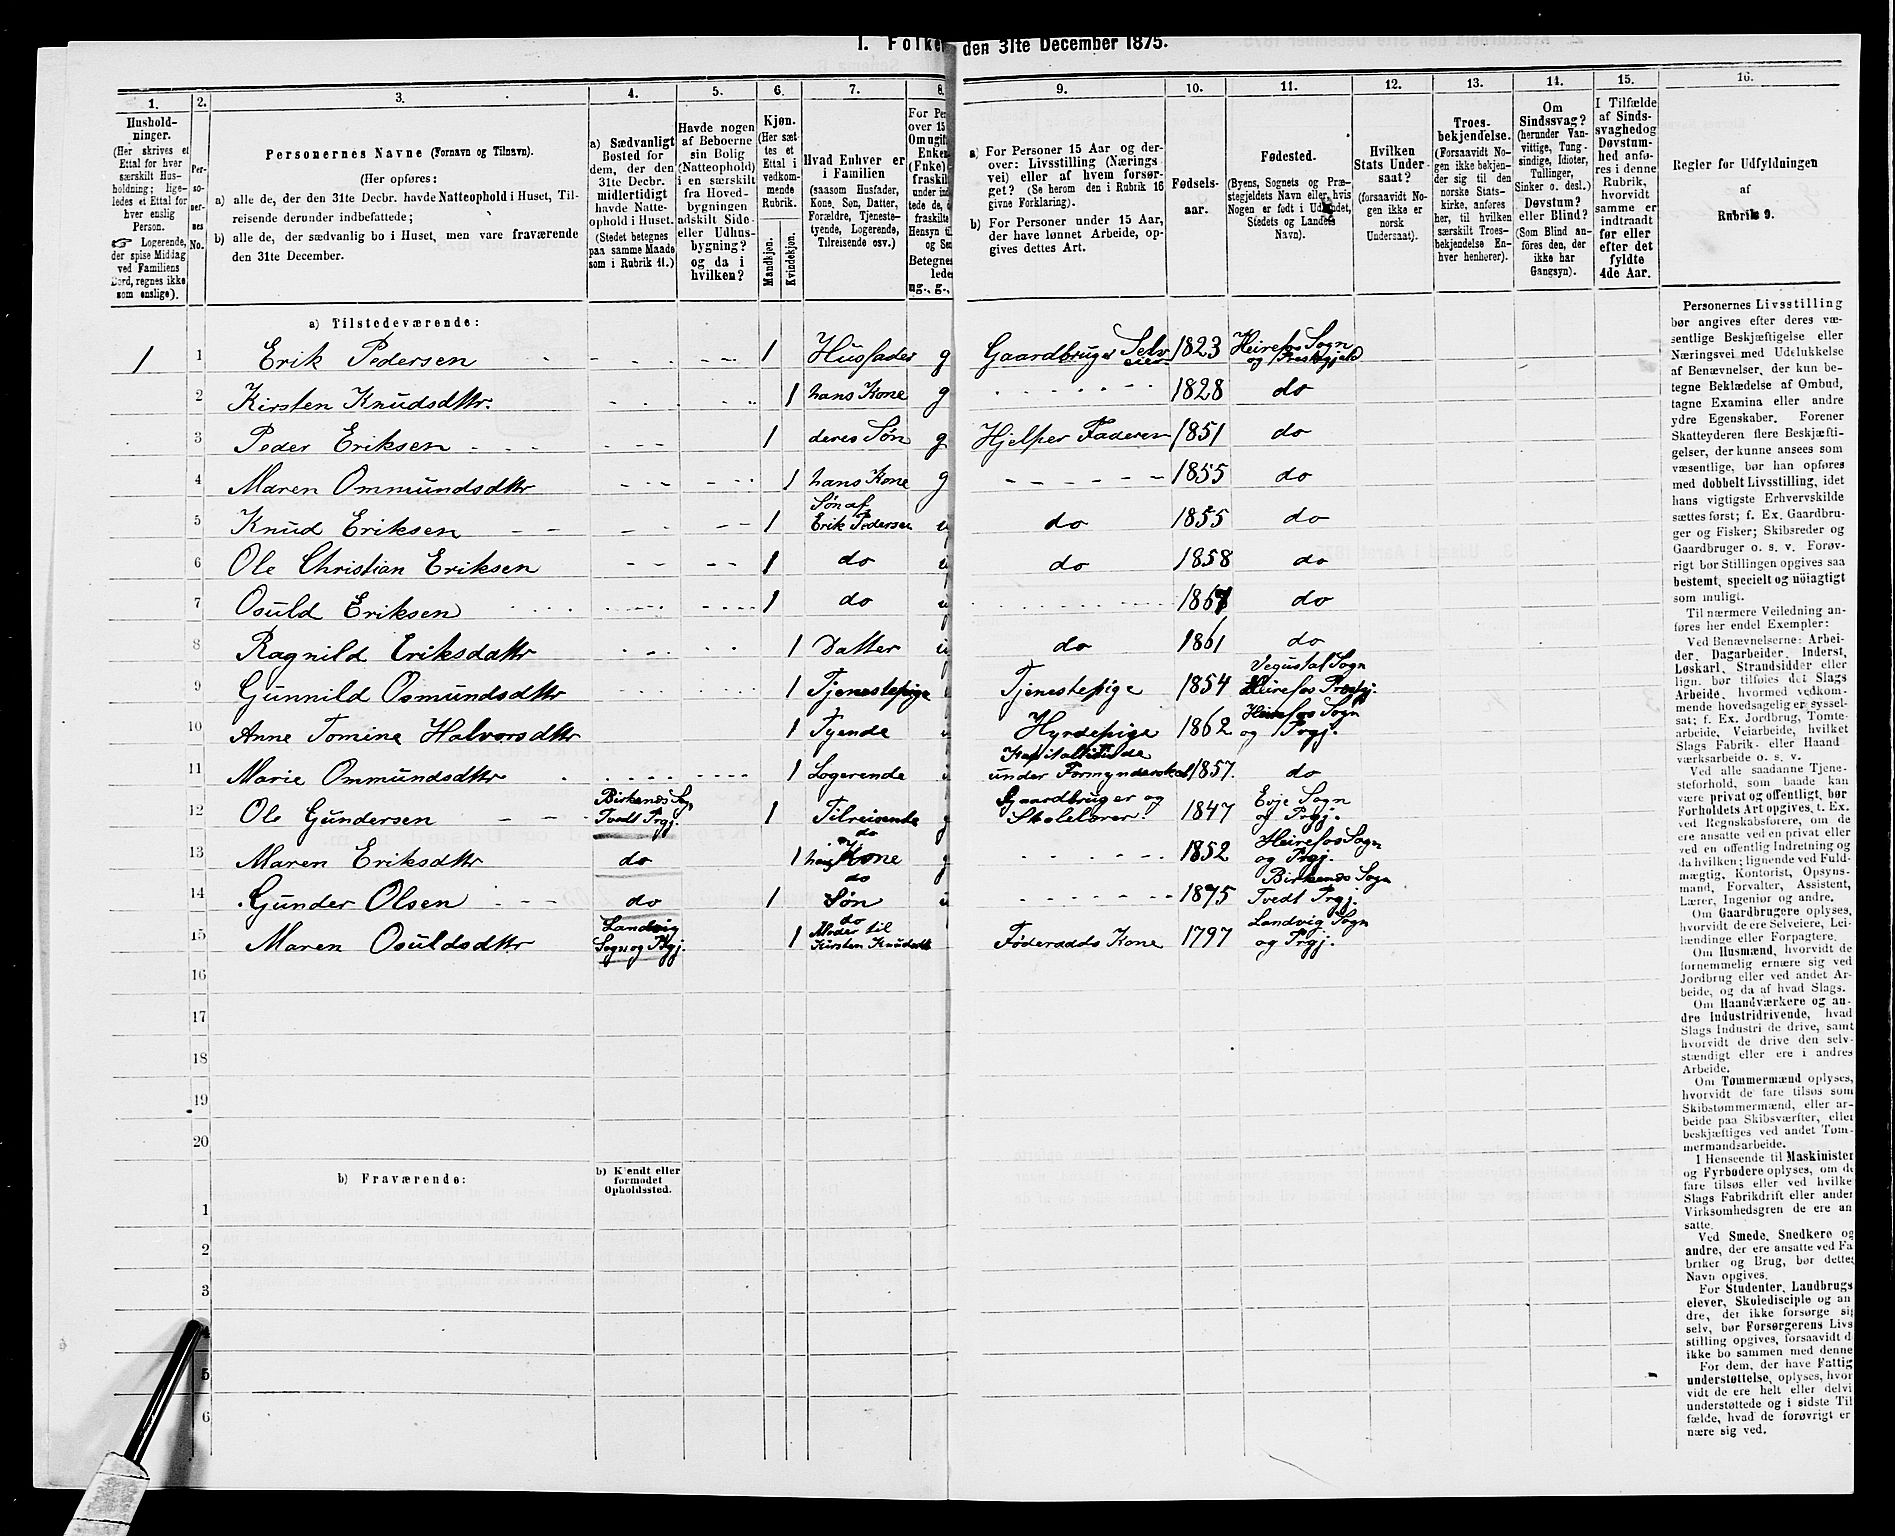 I. Folke den 31te December 1875.
1. 2. 3. 4. 5. 6. 7. 8. 9. 10. 11. 12. 13. 14. 15. 16.
Hushold-
ninger.
(Her skrives et
Ettal for hver
særskilt Hus-
holdning; lige-
ledes et Ettal for
hver enslig
Person.
☞ Logerende,
der spise Middag
ved Familiens
Bord, regnes ikke
som enslige).
Per-
so-
ner-
nes
No.
Personernes Navne (Fornavn og Tilnavn).
(Her opføres:
a) alle de, der den 31te Decbr. havde Natteophold i Huset, Til-
reisende derunder indbefattede;
b) alle de, der sædvanlig bo i Huset, men vare fraværende
den 31te December.
a) Sædvanligt
Bosted for
dem, der den
31te Decbr.
midlertidigt
havde Natte-
ophold i Huset.
(Stedet betegnes
paa samme Maade
som i Rubrik 11.)
Havde nogen
af Beboerne
sin Bolig
(Natteophold)
i en særskilt
fra Hoved-
bygningen
adskilt Side-
eller Udhus-
bygning?
og da i
hvilken?
Kjøn.
(Her sæt-
tes et
Ettal i
vedkom-
mende
Rubrik.
Mandkjøn.
Kvindekjøn.
Hvad Enhver er
i Familien
(saasom Husfader,
Kone, Søn, Datter,
Forældre, Tjeneste-
tyende, Logerende,
Tilreisende osv.)
For Pe
over 15
Om ugift
Enke
(Fnke)
fraskilt
under ind
tede de, d
fraskilte
Hensyn til
og Se
Betegne
lede
ug., g.,
a) For Personer 15 Aar og der-
over: Livsstilling (Nærings
vei) eller af hvem forsør-
get? (Se herom den i Rubrik 16
givne Forklaring).
b) For Personer under 15 Aar,
der have lønnet Arbeide, op-
gives dettes Art.
Fødsels-
aar.
Fødested.
(Byens, Sognets og Præ-
stegjeldets Navn eller, hvis
Nogen er født i Udlandet,
Stedets og Landets
Navn).
Hvilken
Stats Under-
saat?
(forsaavidt No-
gen ikke er
norsk
Undersaat).
Troes-
bekjendelse.
(Forsaavidt No-
gen ikke bekjen-
der sig til den
norske Stats-
kirke, anføres
her, til hvilken
særskilt Troes-
bekjendelse En-
hver henhører).
Om
Sindssvag?
(herunder Van-
vittige, Tung-
sindige, Idioter,
Tullinger,
Sinker o. desl.)
Døvstum?
eller Blind?
(Som Blind an-
føres den, der
ikke har
Gangsyn).
I Tilfælde
af Sinds-
svaghed og
Døvstum-
hed anfø-
res i denne
Rubrik,
hvorvidt
samme er
indtraadt
før eller
efter det
fyldte
4de Aar.
Regler for Udfyldningen
af
Rubrik 9.
a) Tilstedeværende:
1 1 Erik Pedersen 1 Husfader g Gaardbruger Selveier 1823 Heirefos Sogn og Prestegjeld
2 Kirsten Knudsdttr. 1 hans Kone g 1828 do
3 Peder Eriksen 1 deres Søn g Hjelper Faderen 1851 do
4 Maren Ommundsdttr 1 hans Kone g 1855 do
5 Knud Eriksen 1 Søn af Erik Pedersen u do 1855 do
6 Ole Christian Eriksen 1 do u do 1858 do
7 Osuld Eriksen 1 do u do
8 Ragnild Eriksdattr 1 Datter u do 1861 do
9 Gunnild Osmundsdttr 1 Tjenestepige Tjenestepige 1854 Vegusdal Sogn Heirefos Prstgj.
10 Anne Tomine Halvorsdttr 1 Tyende u Hyrdepige 1862 Heirefos Sogn og Prgj.
11 Marie Ommundsdttr 1 Logerende under Formynderskab 1857. do
12 Ole Gundersen Birkenes Sogn Tvedt Prgj. 1 Tilreisende g Gaardbruger og Skolelærer 1847 Evje Sogn og Prgj.
13 Maren Eriksdttr do 1 do hans Kone g 1852 Heirefos Sogn og Prgj.
14 Gunder Olsen do 1 do Søn u 1875 Birkenes Sogn Tvedt Prgj.
15 Maren Osuldsdttr Landvig Sogn og Prgj. 1 do Moder til Kirsten Knudsdtt Føderaads Kone 1797 Landvig Sogn og Prgj.
16
17
18
19
20
b) Fraværende:
b) Kjendt eller
formodet
Opholdssted.
1
2
3
4
5
6
Personernes Livsstilling
bør angives efter deres væ-
sentlige Beskjæftigelse eller
Næringsvei med Udelukkelse
af Benævnelser, der kun be-
tegne Beklædelse af Ombud,
tagne Examina eller andre
ydre Egenskaber. Forener
Skatteyderen flere Beskjæfti-
gelser, der kunne ansees som
væsentlige, bør han opføres
med dobbelt Livsstilling, idet
hans vigtigste Erhvervskilde
sættes først; f. Ex. Gaardbru-
ger og Fisker; Skibsreder og
Gaardbruger o. s. v. Forøv-
rigt bør Stillingen opgives saa
bestemt, specielt og nöiagtigt
som muligt.
Til nærmere Veiledning an-
føres her endel Exempler:
Ved Benævnelserne: Arbei-
der, Dagarbeider, Inderst,
Løskarl, Strandsidder eller
lign. bør tilføies det Slags
Arbeide, hvormed vedkom-
mende hovedsagelig er syssel-
sat; f. Ex. Jordbrug, Tomte-
arbeide, Veiarbeide, hvilket
Slags Fabrik- eller Haand
værksarbeide o. s. v.
Ved alle saadanne Tjene-
steforhold, som baade kan
være privat og offentligt, bør
Forholdets Art opgives, t. Ex.
ved Regnskabsførere, om de
ere ansatte ved en privat eller
ved en offentlig Indretning og
da hvilken; lignende ved Fuld-
mægtig, Kontorist, Opsyns-
mand, Forvalter, Assistent,
Lærer, Ingeniør og andre.
Om Gaardbrugere oplyses,
hvorvidt de ere Selveiere, Lei-
lændinge eller Forpagtere.
Om Husmænd, hvorvidt de
fornemmelig ernære sig ved
Jordbrug eller ved andet Ar-
beide, og da af hvad Slags.
Om Haandværkere og an-
dre Industridrivende, hvad
Slags Industri de drive, samt
hvorvidt de drive den selv-
stændigt eller ere i andres
Arbeide.
Om Tømmermænd oplyses,
hvorvidt de fare tilsøs som
Skibstømmermænd, eller ar-
beide paa Skibsværfter, eller
beskjæftiges ved andet Tøm-
mermandsarbeide.
I Henseende til Maskinister
og Fyrbødere oplyses, om de
fare tilsøs eller ved hvilke
Slags Fabrikdrift eller anden
Virksomhedsgren de ere an
satte.
Ved Smede, Snedkere og
andre, der ere ansatte ved Fa
briker og Brug, bør dettes
Navn opgives.
For Studenter, Landbrugs
elever, Skoledisciple og an
dre, der ikke forsørge sig
selv, bør Forsørgerens Livs
stilling opgives, forsaavidt d
ikke bo sammen med denne
For dem, der have Fattig
understøttelse, oplyses, hvor
vidt de ere helt eller delvi
understøttede og i sidste Til
fælde, hvad de forøvrigt er
nære sig ved.